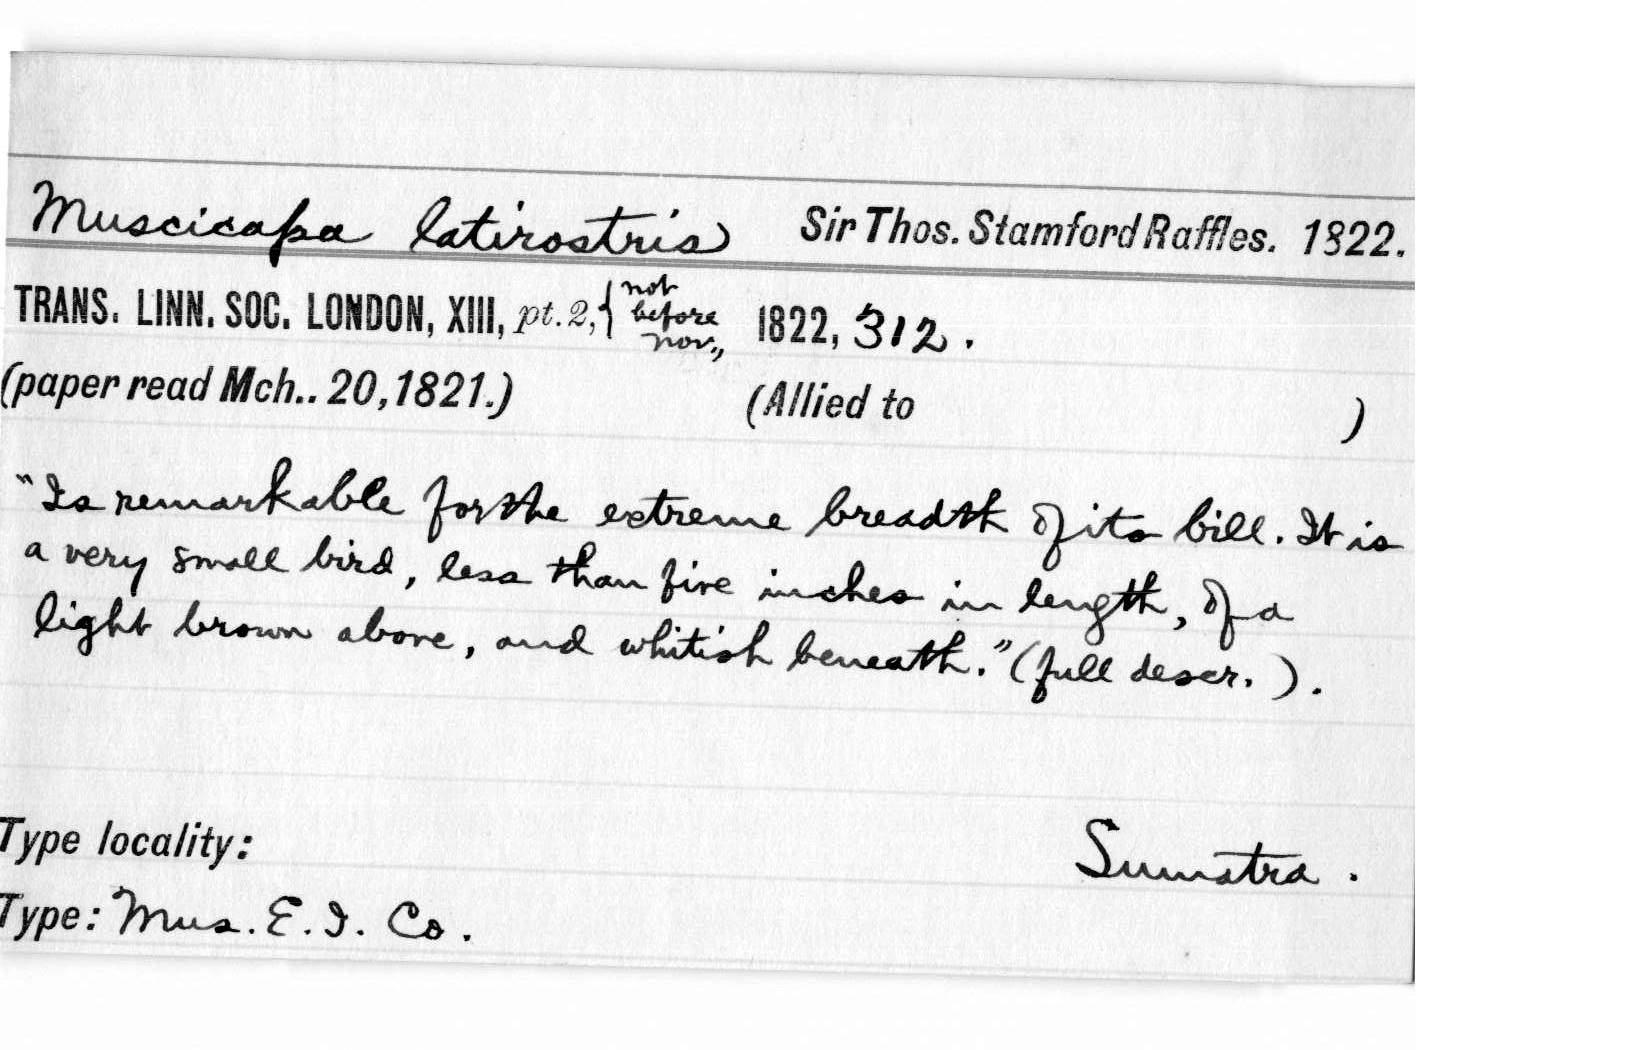 Muscicapa latirostris Sir Thos. Stamford Raffles. 1822.
TRANS. LINN. SOC. LONDON, XIII, pt. 2, { not before Nov., 1822, 312.
(paper read Mch.. 20, 1821.) (Allied to )
"Is remarkable for the extreme breadth of its bill. It is
a very small bird, less than five inches in length, of a
light brown above, and whitish beneath." (full descr. ).
Type locality: Sumatra.
Type: Mus. E. I. Co.